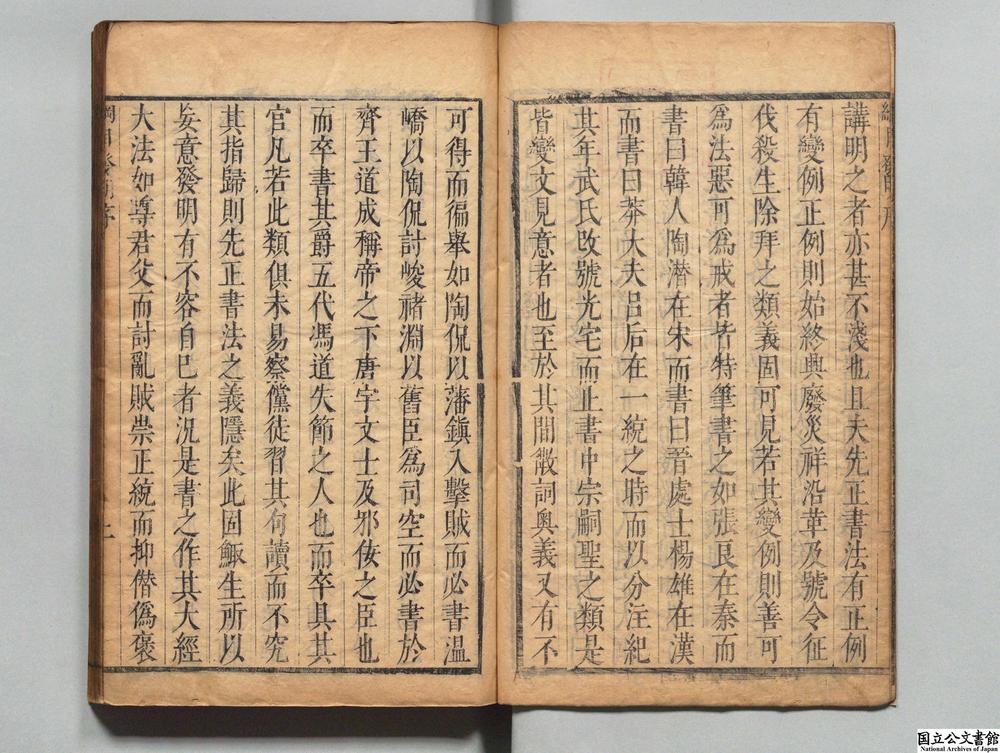 講明之者亦甚不淺也且夫先正書法有正例
有變例正例則始終興廢災祥沿革及號令征
伐殺生除拜之類義固可見若其變例則善可
爲法惡可爲戒者皆特筆書之如張良在秦而
書曰韓人陶潜在宋而書曰晉處士楊雄在漢
而書曰莽大夫呂后在一統之時而以分注紀
其年武氏改號光宅而止書中宗嗣聖之類是
皆變文見意者也至於其間微詞奥義又有不
可得而徧舉如陶侃以藩鎮入擊賊而必書温
嶠以陶侃討峻禇淵以舊臣爲司空而必書於
齊王道成稱帝之下唐宇文士及邪佞之臣也
而卒書其爵五代馮道失節之人也而卒具其
官凡若此類俱未易察儻徒習其句讀而不究
其指歸則先正書法之義隱矣此固鯫生所以
妄意發明有不容自巳者況是書之作其大經
大法如尊君父而討亂賊崇正統而抑僣僞褒
綱目發明序
上
国立公文書館
National Archives of Japan